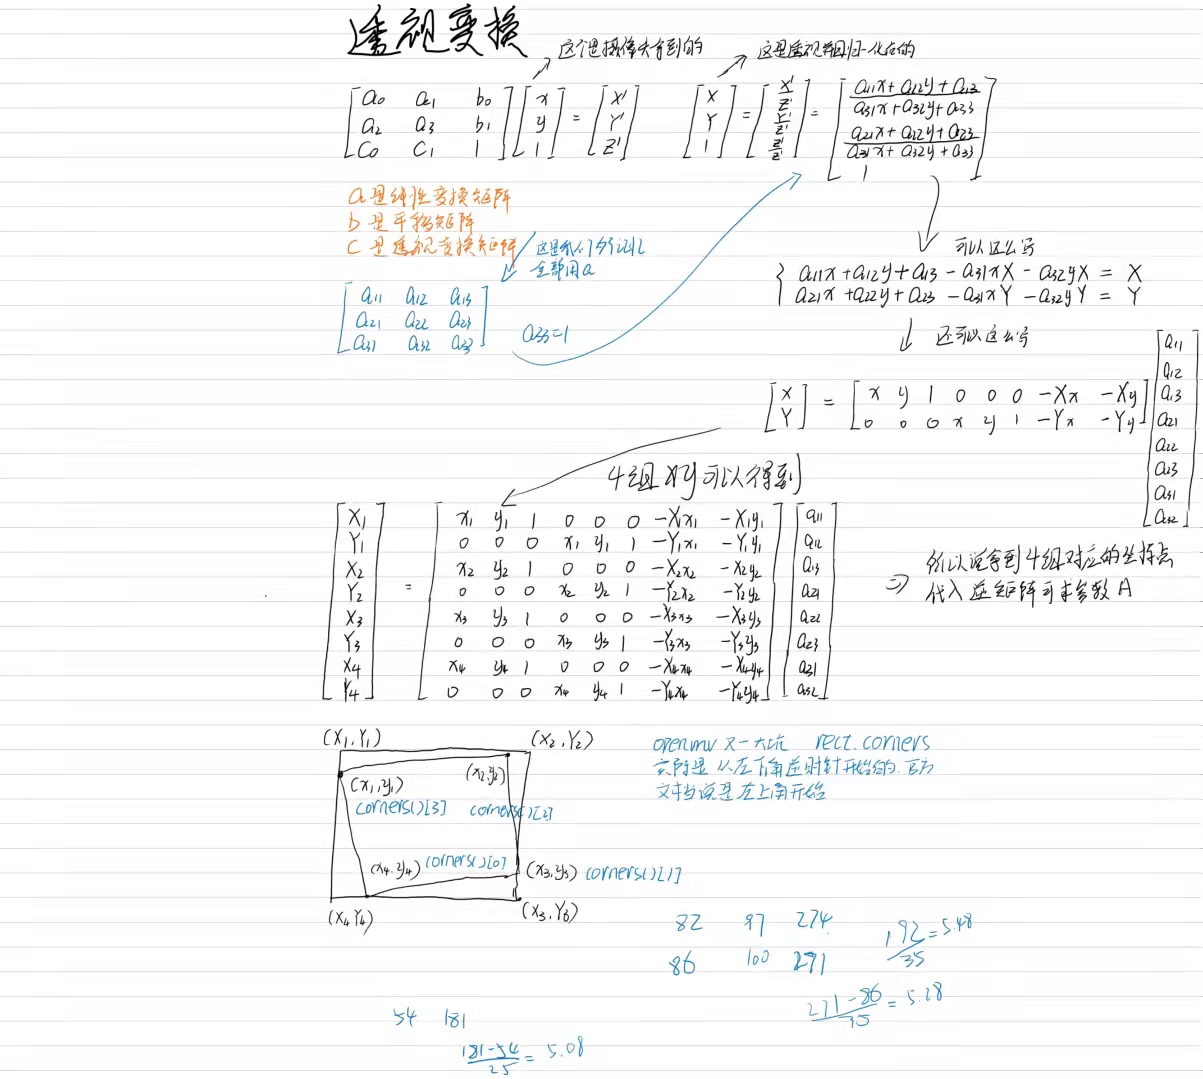 透视变换
这个是摄像头拿到的
这是透视矩阵归一化后的
[a0 a1 b0; a2 a3 b1; c0 c1 1] [x; y; 1] = [X'; Y'; Z']
[X; Y; 1] = [X'/Z'; Y'/Z'; Z'/Z'] = [(a11x + a12y + a13)/(a31x + a32y + a33); (a21x + a22y + a23)/(a31x + a32y + a33); 1]
a 是线性变换矩阵
b 是平移矩阵
c 是透视变换矩阵
这是我们
全部用a
[a11 a12 a13; a21 a22 a23; a31 a32 a33]
a33=1
可以这么写
a11x + a12y + a13 - a31xX - a32yX = X
a21x + a22y + a23 - a31xY - a32yY = Y
还可以这么写
[X; Y] = [x y 1 0 0 0 -Xx -Xy; 0 0 0 x y 1 -Yx -Yy] [a11; a12; a13; a21; a22; a23; a31; a32]
4组xy可以得到
X1 = x1 y1 1 0 0 0 -X1x1 -X1y1 a11
Y1 0 0 0 x1 y1 1 -Y1x1 -Y1y1 a12
X2 x2 y2 1 0 0 0 -X2x2 -X2y2 a13
Y2 0 0 0 x2 y2 1 -Y2x2 -Y2y2 a21
X3 x3 y3 1 0 0 0 -X3x3 -X3y3 a22
Y3 0 0 0 x3 y3 1 -Y3x3 -Y3y3 a23
X4 x4 y4 1 0 0 0 -X4x4 -X4y4 a31
Y4 0 0 0 x4 y4 1 -Y4x4 -Y4y4 a32
⇒ 所以说拿到4组对应的坐标点
代入 逆矩阵可求参数A
(X1,Y1)
(X2,Y2)
(x1,y1)
(x2,y2)
corners()[3]
corners()[2]
(x4,y4)
corners()[0]
(x3,y3)
corners()[1]
(X4,Y4)
(X3,Y3)
openmv 又一大坑 rect.corners
实际是 从左下角逆时针开始的,官方
文档说是左上角开始
82 97 274
86 100 271
192/35=5.48
271-86/35=5.28
54 181
181-54/25=5.08